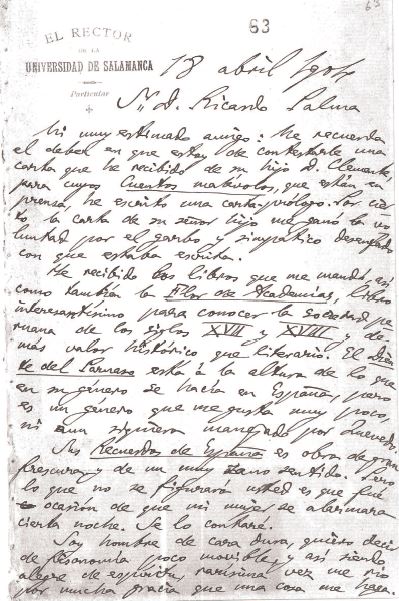 63
63
EL RECTOR
DE LA
UNIVERSIDAD DE SALAMANCA
Particular
18 abril 1904
Sr. D. Ricardo Palma
Mi muy estimado amigo: Me recuerda
el deber en que estoy de contestarle una
carta que he recibido de su hijo D. Clemente,
para cuyos Cuentos malévolos, que están en
prensa, he escrito una carta-prólogo. Por cier-
to la carta de su señor hijo me ganó la vo-
luntad por el garbo y simpático desenfado
con que estaba escrita.
He recibido los libros que me mandó, así
como también la Flor de Academias, libro
interesantísimo para conocer la sociedad pe-
ruana de los siglos XVII y XVIII y de
más valor histórico que literario. El Dien-
te del Parnaso está á la altura de lo que
en su género se hacía en España, pero
es un género que me gusta muy poco,
ni aun siquiera manejado por Quevedo.
Sus Recuerdos de España es obra de gran
frescura y de un muy sano sentido. Pero
lo que no se figurará usted es que fué
ocasión de que mi mujer se alarmara
cierta noche. Se lo contaré.
Soy hombre de cara dura, quiero decir
de fisonomía poco movible, y así siendo
alegre de espíritu, rarísima vez me río
por mucha gracia que una cosa me haga.